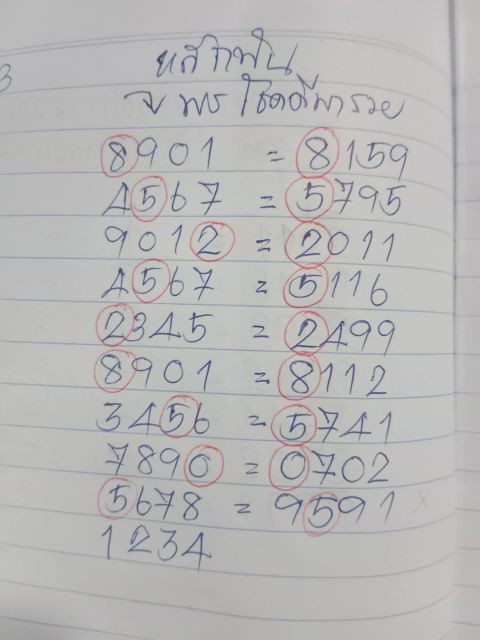 3
หลักพัน
จ พร โชคดีมารวย
8901 = 8159
4567 = 5795
9012 = 2011
4567 = 5116
2345 = 2499
8901 = 8112
3456 = 5741
7890 = 0702
5678 = 9591 x
1234